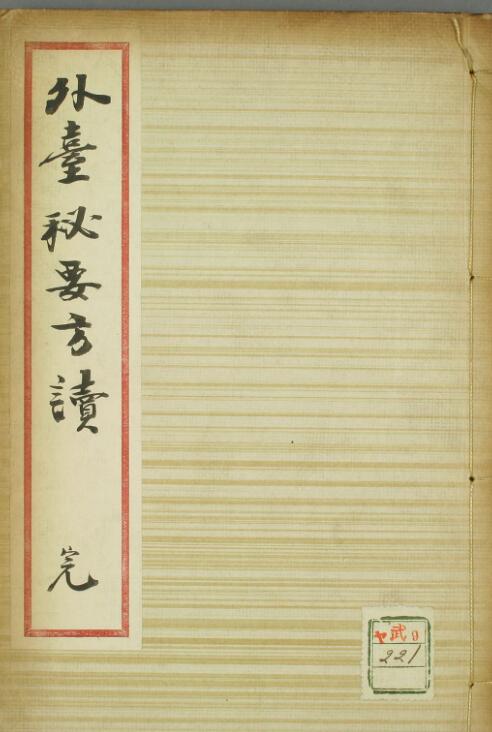 外臺秘要方讀 完
ヤ武9
221